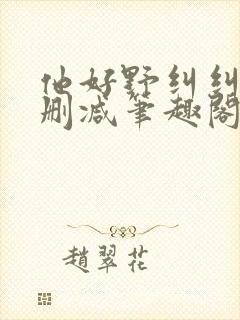 他好野纠纠
删减笔趣阁
趙翠花